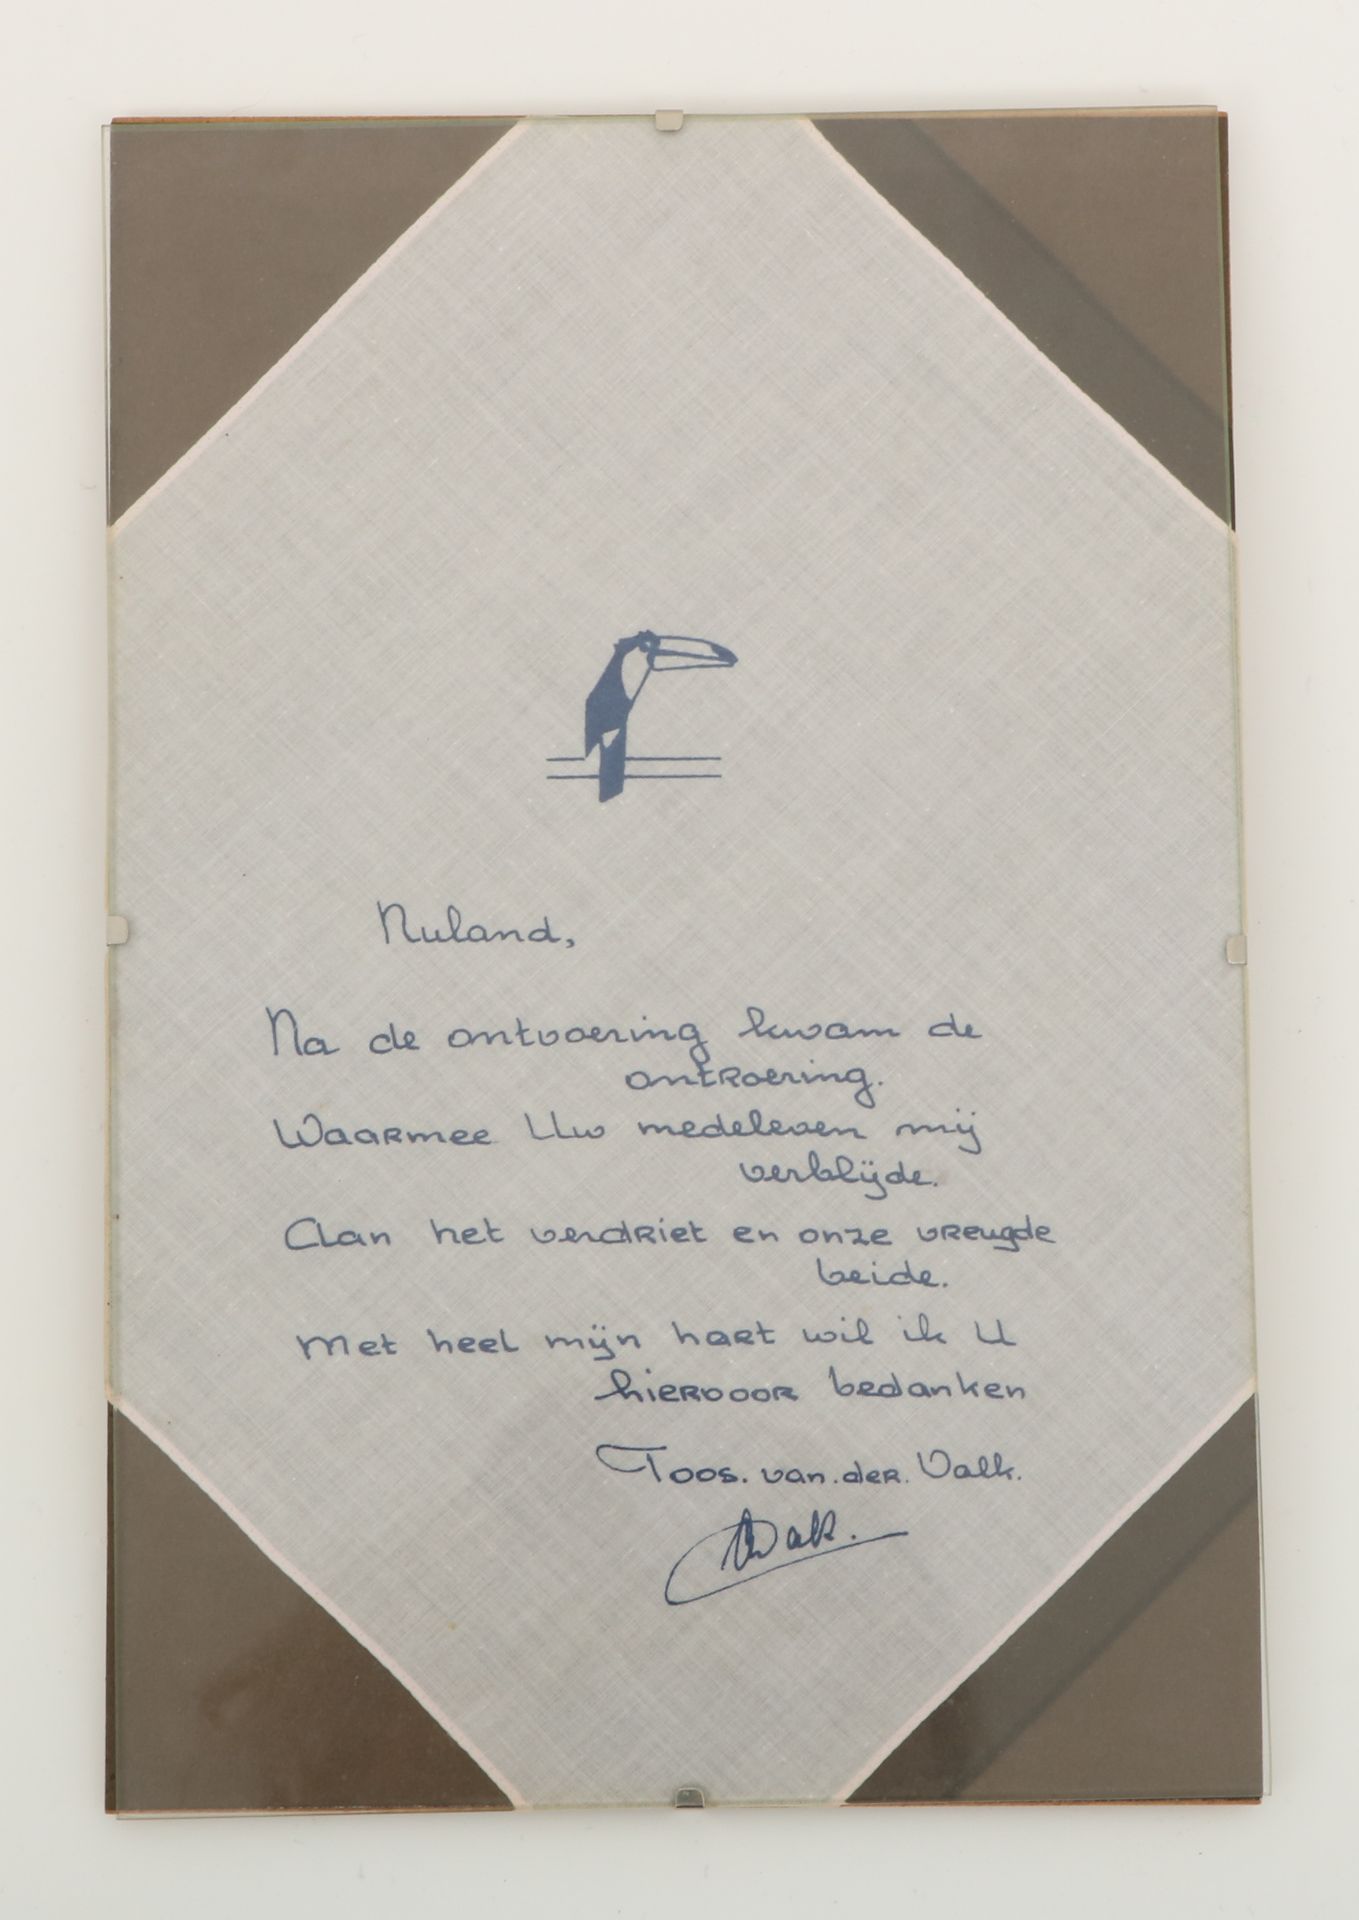 Nuland,
Na de ontvoering kwam de
ontroering.
Waarmee Uw medeleven mij
verblijde.
Aan het verdriet en onze vreugde
beide.
Met heel mijn hart wil ik U
hiervoor bedanken
Toos. van. der. Valk.
Valk.